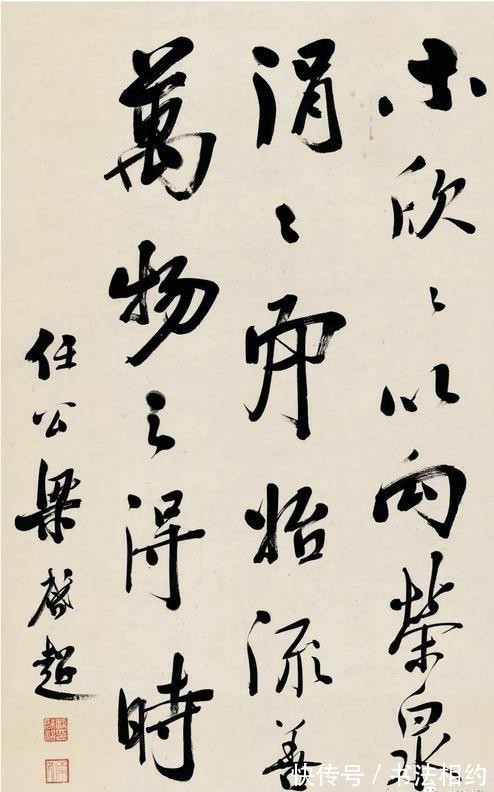 木欣〻以向榮泉
涓〻而始流善
萬物之得時
任公梁啟超
快传号 / 书法相约